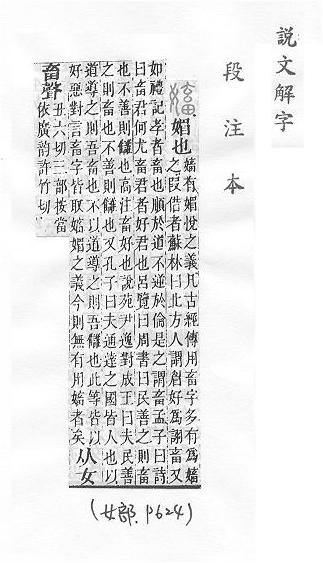 說文解字
段注本
㜅 媚也
㜅有媚悅之義凡古經傳用畜字多有爲㜅
之叚借者蘇林曰北方人謂媚好爲詡畜又
如禮記孝者畜也順於道不逆於倫是之謂畜孟子曰詩
曰畜君何尤畜君者好君也呂覽曰周書曰民善之則畜
也不善則讎也高注畜好也說苑尹逸對成王曰夫民善
之則畜也不善則讎也又孔子曰夫通達之國皆人也以
道導之則吾畜也不以道導之則吾讎也此等皆以
好惡對言畜字皆取㜅媚之義今則無有用㜅者矣
从女
畜聲
丑六切三部按當
依廣韵許竹切
(女部. P624)